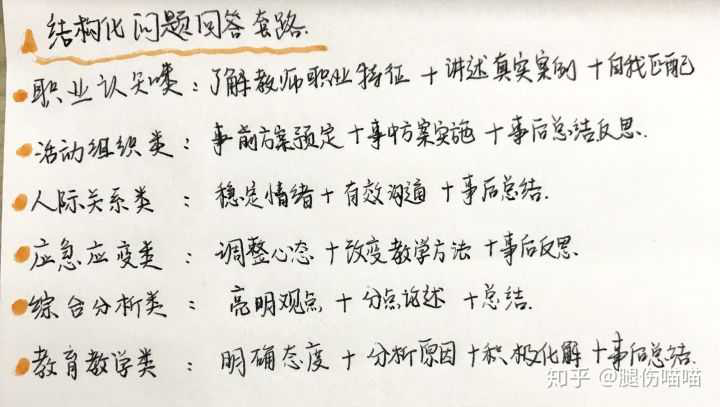 结构化问题回答套路.
职业认知类：了解教师职业特征 + 讲述真实案例 + 自我匹配
活动组织类：事前方案预定 + 事中方案实施 + 事后总结反思.
人际关系类：稳定情绪 + 有效沟通 + 事后总结.
应急应变类：调整心态 + 改变教学方法 + 事后反思.
综合分析类：亮明观点 + 分点论述 + 总结.
教育教学类：明确态度 + 分析原因 + 积极化解 + 事后总结.
知乎 @腿伤喵喵